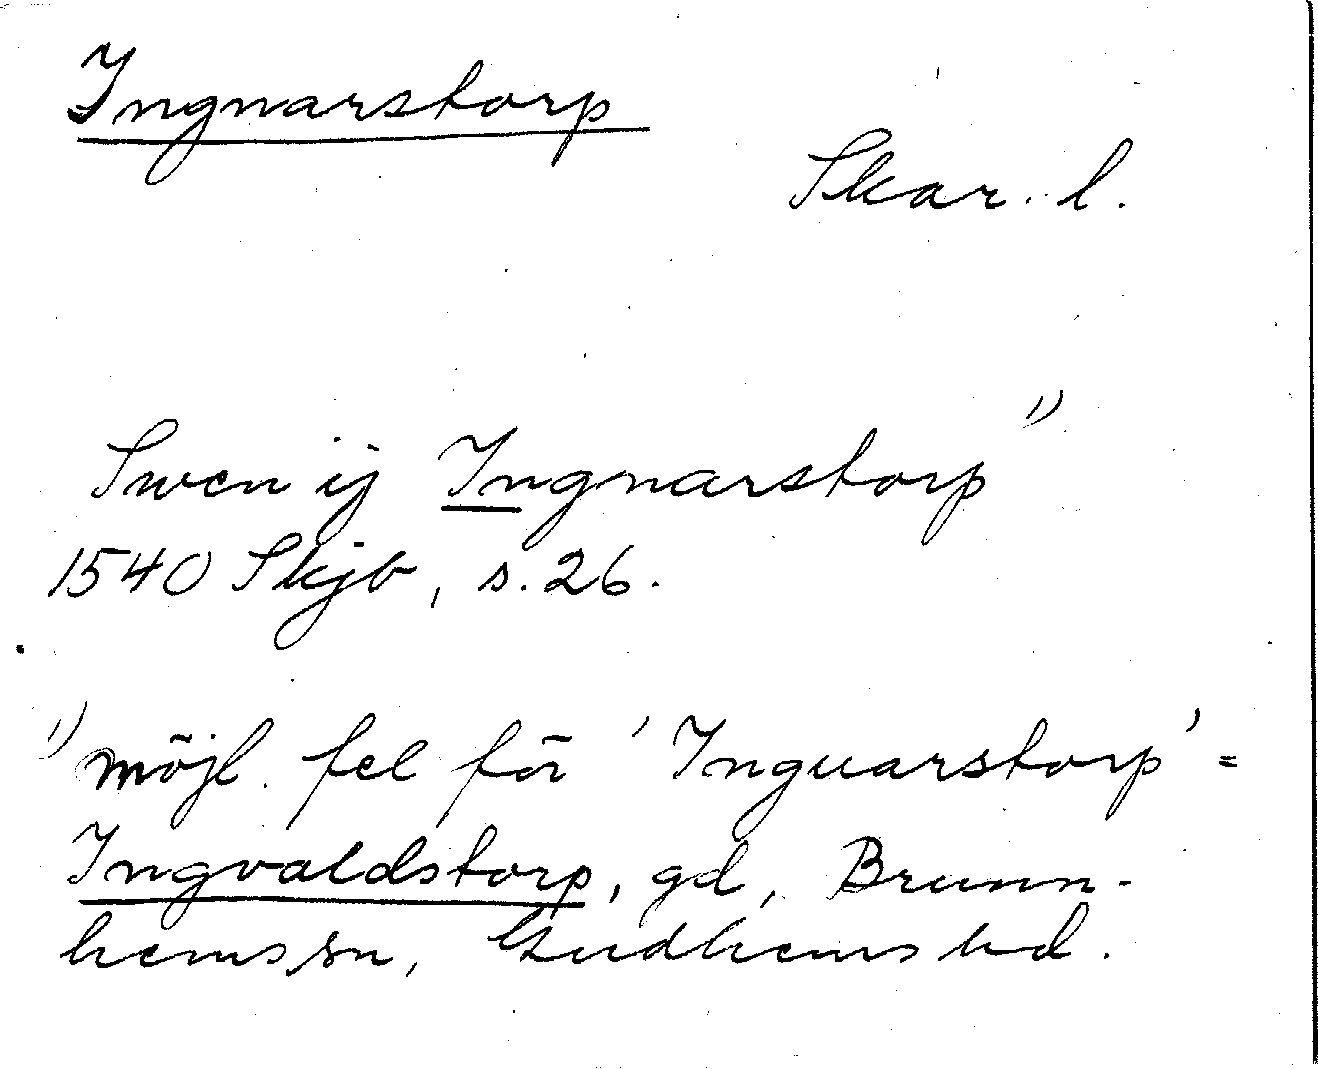 Ingnarstorp
Skar. l.
Swen ij Ingnarstorp 1)
1540 Skjb, s. 26.
1) möjl. fel för 'Inguarstorp' =
Ingvaldstorp, gd, Brunn-
hems sn, Gudhems hd.